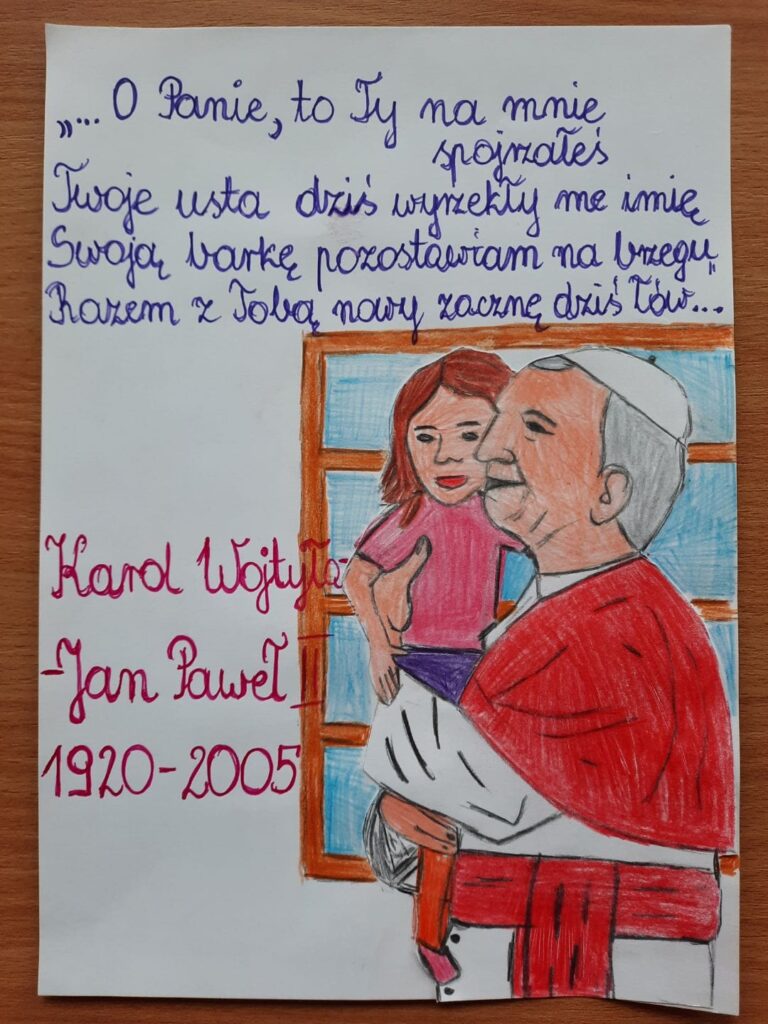 „... O Panie, to Ty na mnie
spojrzałeś
Twoje usta dziś wyrzekły me imię
Swoją barkę pozostawiam na brzegu
Razem z Tobą nowy zacznę dziś łów..."
Karol Wojtyła-
-Jan Paweł II
1920-2005